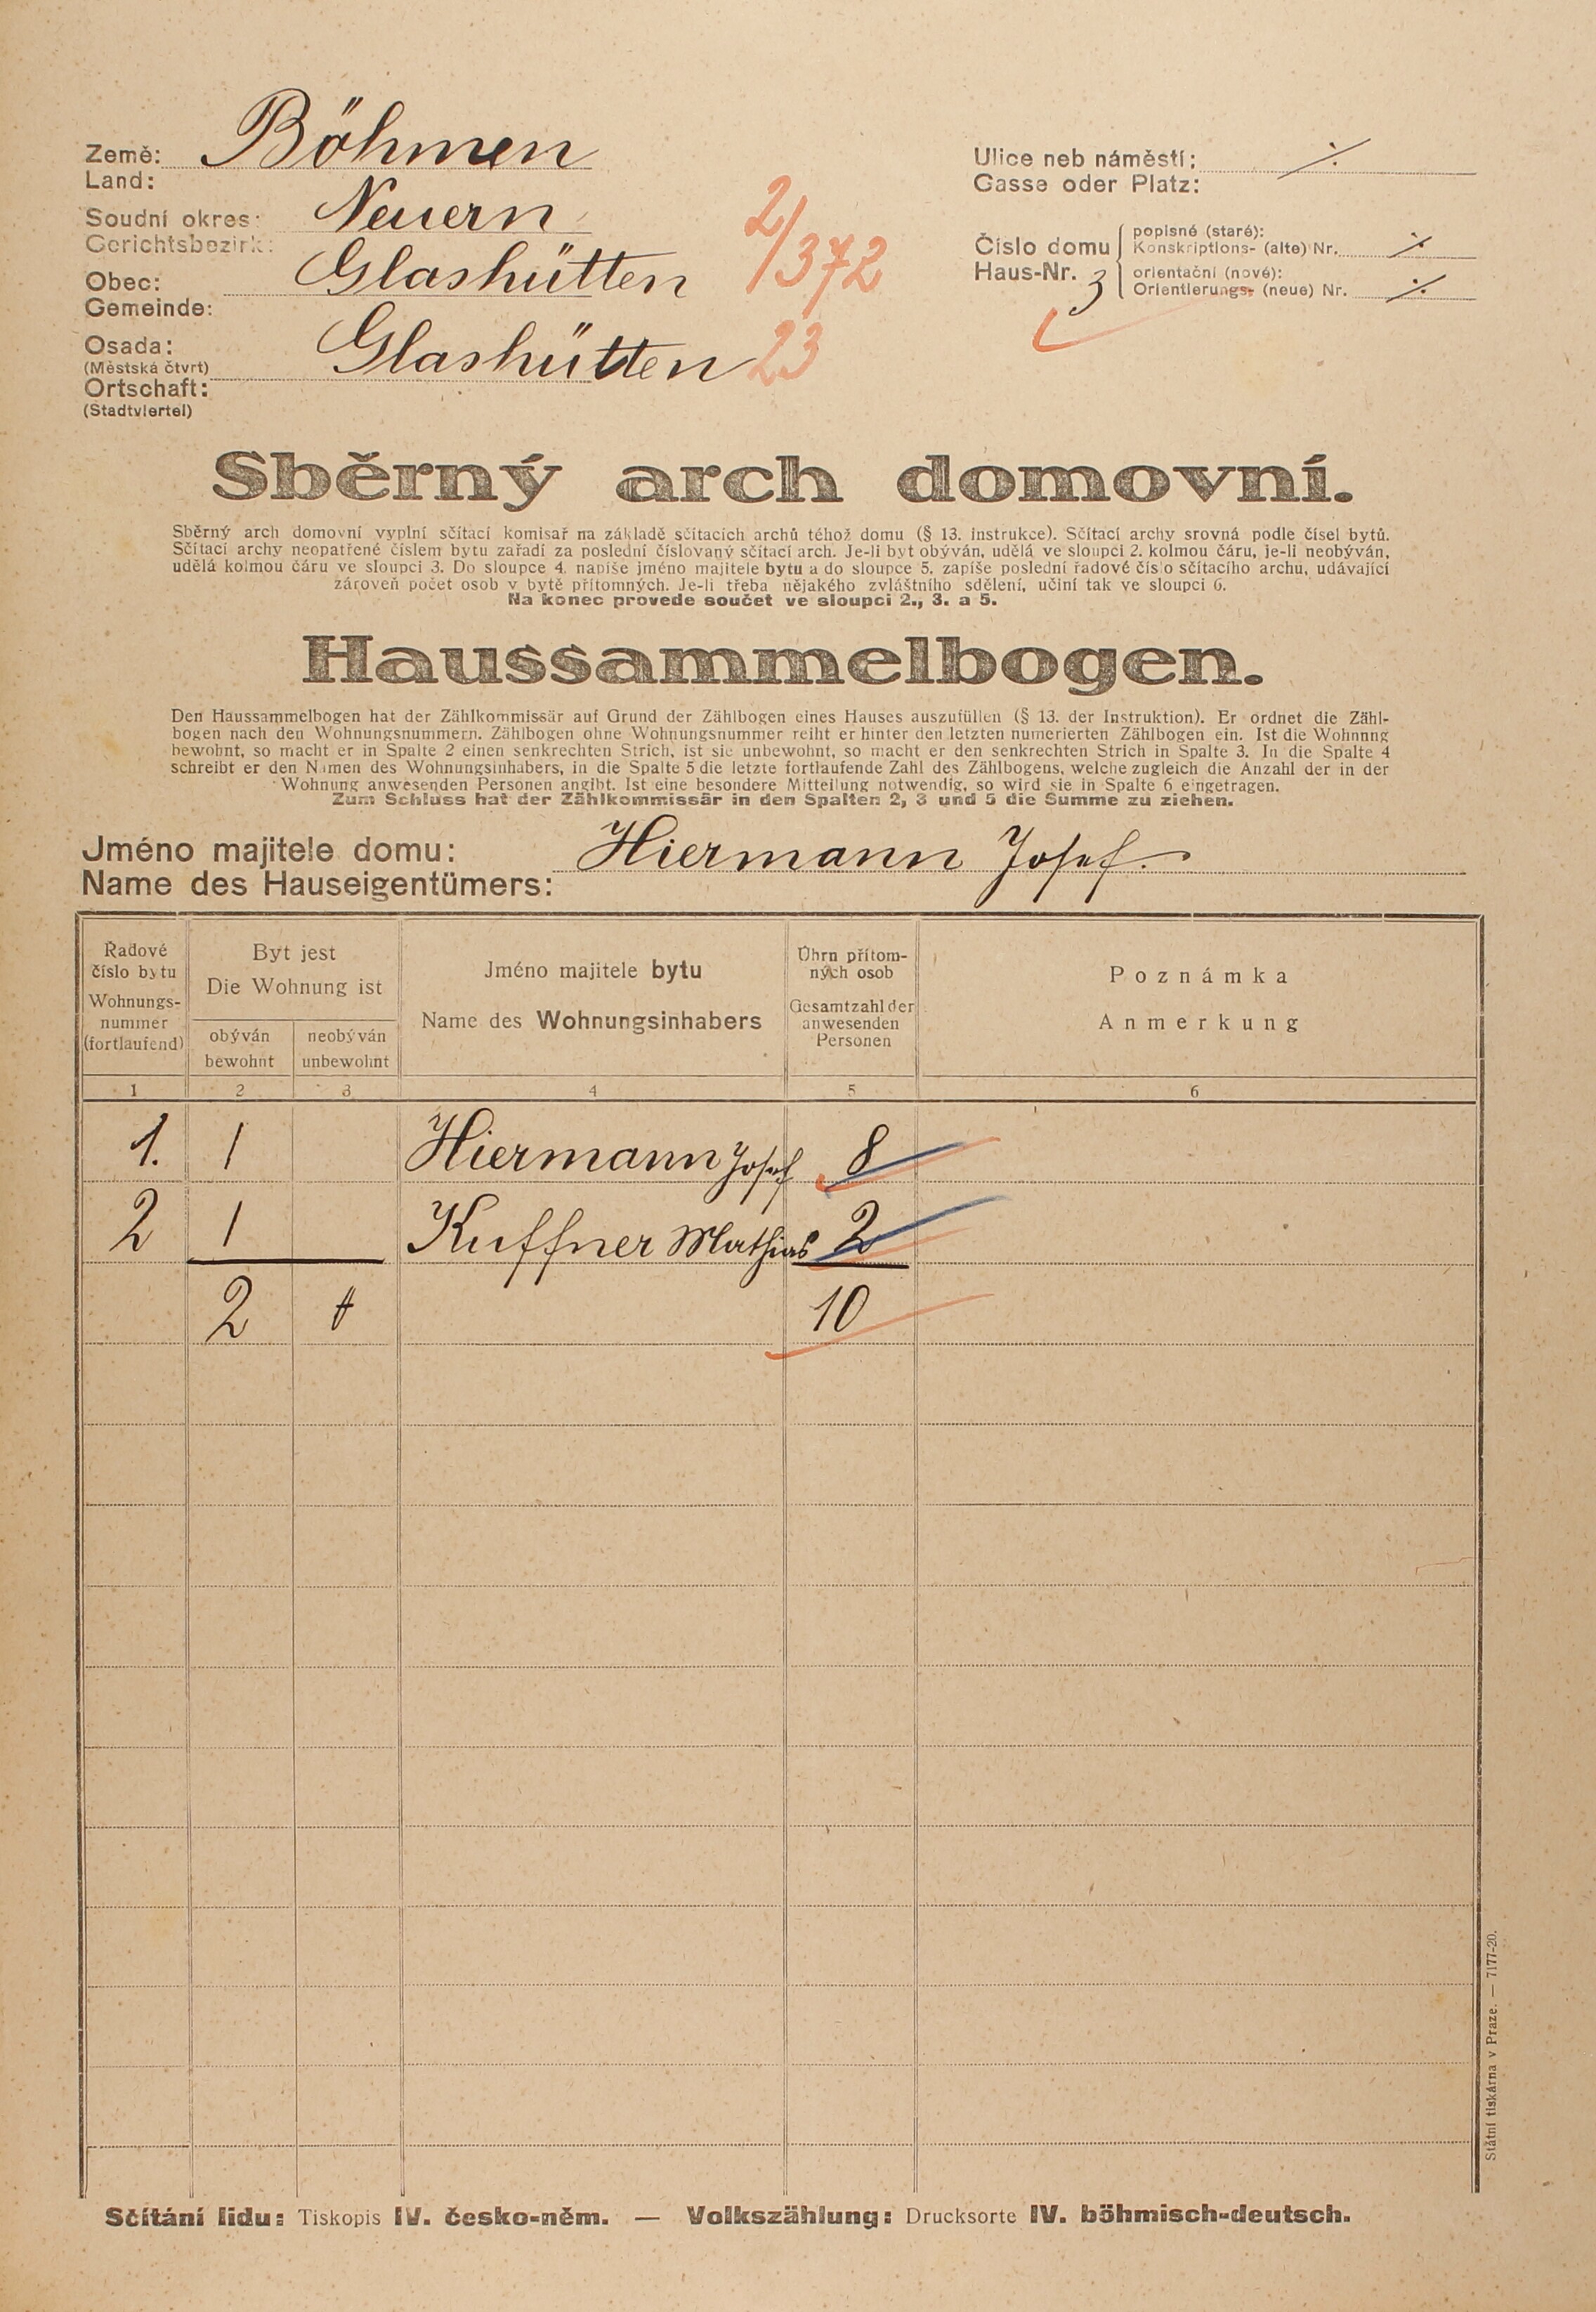 Země: Böhmen
Land:
Soudní okres: Neuern
Gerichtsbezirk:
Obec: Glashütten
Gemeinde:
Osada: Glashütten
(Městská čtvrt)
Ortschaft:
(Stadtviertel)
2/372
23
Ulice neb náměstí: ./.
Gasse oder Platz:
Číslo domu
Haus-Nr. 3
popisné (staré):
Konskriptions- (alte) Nr. ./.
orientační (nové):
Orientierungs- (neue) Nr. ./.
Sběrný arch domovní.
Sběrný arch domovní vyplní sčítací komisař na základě sčítacích archů téhož domu (§ 13. instrukce). Sčítací archy srovná podle čísel bytů.
Sčítací archy neopatřené číslem bytu zařadí za poslední číslovaný sčítací arch. Je-li byt obýván, udělá ve sloupci 2. kolmou čáru, je-li neobýván,
udělá kolmou čáru ve sloupci 3. Do sloupce 4. napíše jméno majitele bytu a do sloupce 5. zapíše poslední řadové číslo sčítacího archu, udávající
zároveň počet osob v bytě přítomných. Je-li třeba nějakého zvláštního sdělení, učiní tak ve sloupci 6.
Na konec provede součet ve sloupci 2., 3. a 5.
Haussammelbogen.
Den Haussammelbogen hat der Zählkommissär auf Grund der Zählbogen eines Hauses auszufüllen (§ 13. der Instruktion). Er ordnet die Zähl-
bogen nach den Wohnungsnummern. Zählbogen ohne Wohnungsnummer reiht er hinter den letzten numerierten Zählbogen ein. Ist die Wohnung
bewohnt, so macht er in Spalte 2 einen senkrechten Strich, ist sie unbewohnt, so macht er den senkrechten Strich in Spalte 3. In die Spalte 4
schreibt er den Namen des Wohnungsinhabers, in die Spalte 5 die letzte fortlaufende Zahl des Zählbogens, welche zugleich die Anzahl der in der
Wohnung anwesenden Personen angibt. Ist eine besondere Mitteilung notwendig, so wird sie in Spalte 6 eingetragen.
Zum Schluss hat der Zählkommissär in den Spalten 2, 3 und 5 die Summe zu ziehen.
Jméno majitele domu: Hiermann Josef.
Name des Hauseigentümers:
Řadové číslo bytu
Wohnungs-nummer (fortlaufend)
Byt jest
Die Wohnung ist
obýván
bewohnt
neobýván
unbewohnt
Jméno majitele bytu
Name des Wohnungsinhabers
Úhrn přítom-
ných osob
Gesamtzahl der
anwesenden
Personen
Poznámka
Anmerkung
1 2 3 4 5 6
1. 1 Hiermann Josef 8
2 1 Kuffner Mathias 2
2 10
Sčítání lidu: Tiskopis IV. česko-něm. — Volkszählung: Drucksorte IV. böhmisch-deutsch.
Státní tiskárna v Praze. — 7177-20.